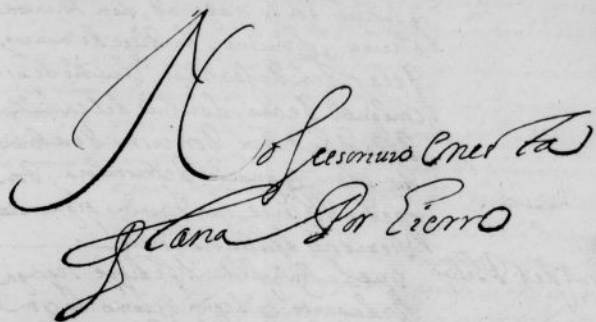 No se escriuio en esta
Plana Por hierro